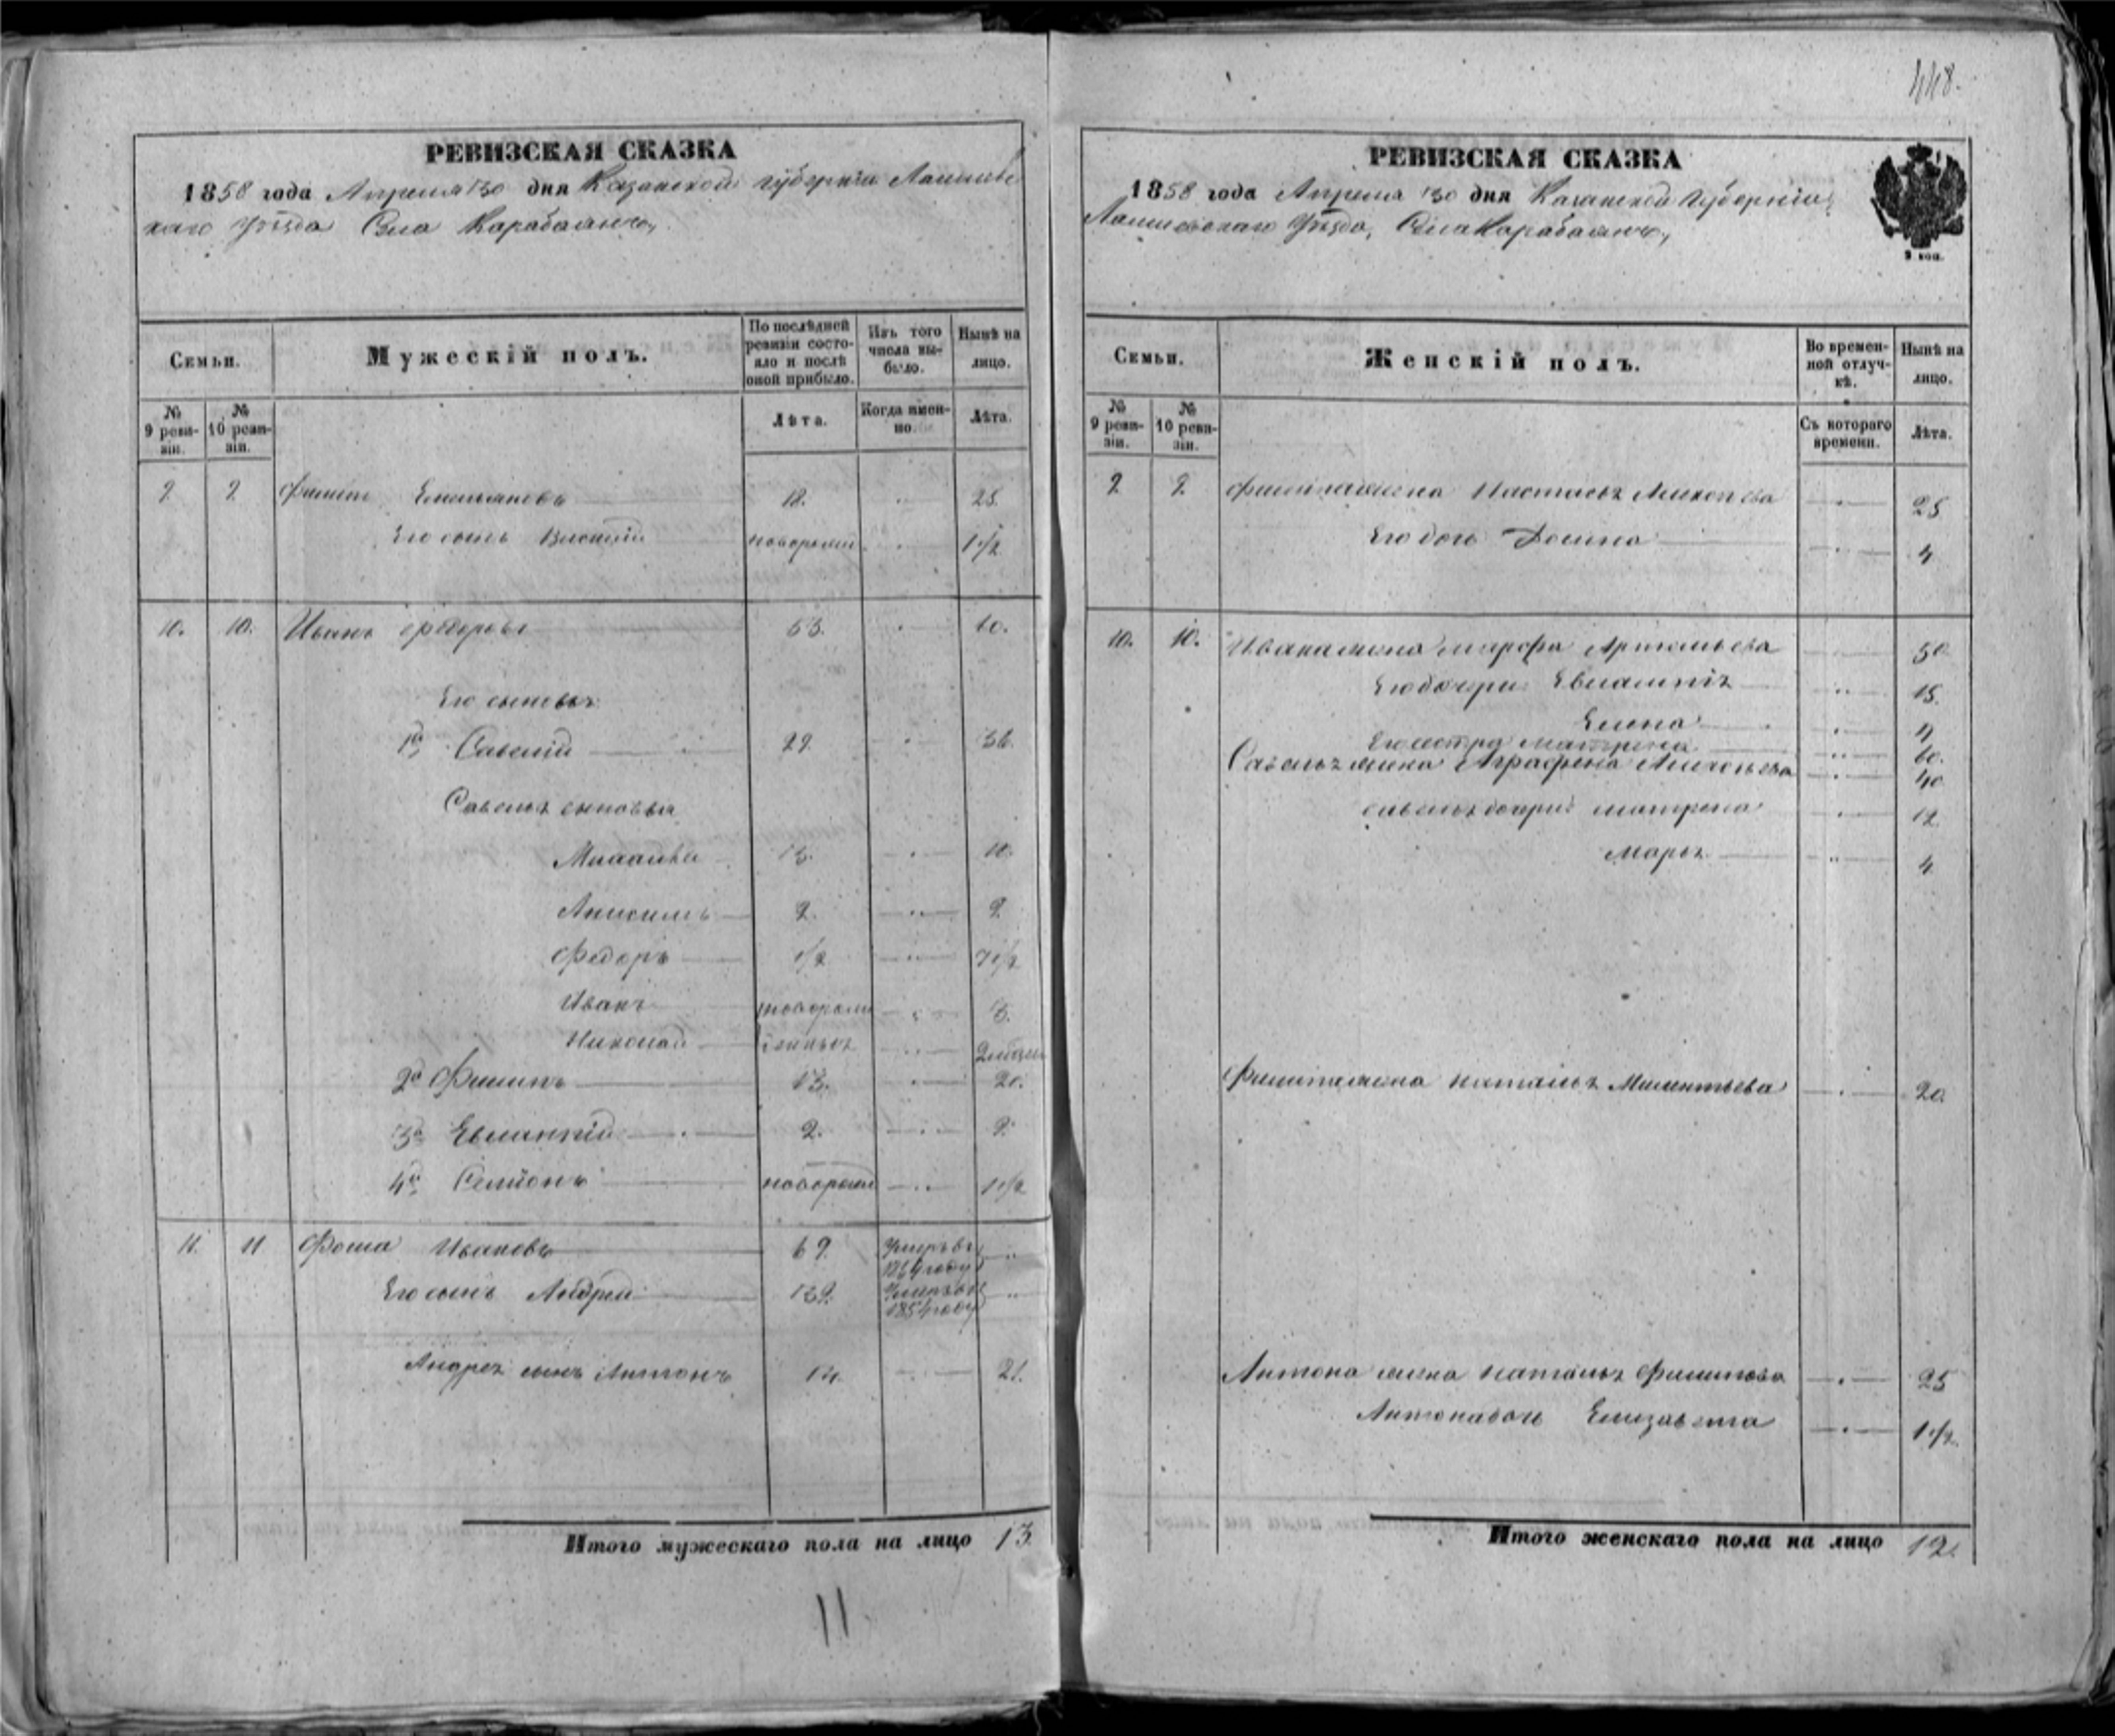 448.
РЕВИЗСКАЯ СКАЗКА
1858 года Апреля 30 дня Казанской губернии Лаишев
скаго Уѣзда Села Карабаянъ,
Семьи.
Мужескій полъ.
По послѣдней ревизіи состояло и послѣ оной прибыло.
Изъ того числа выбыло.
Нынѣ на лицо.
№ 9 ревизіи.
№ 10 ревизіи.
Лѣта.
Когда именно.
Лѣта.
9 9 Филипъ Емельяновъ 18. 25.
Его сынъ новорожд 1 1/2
10. 10. Иванъ Федоровъ 53. 60.
Его сыновья
1й Савелій 29. 36.
Савелья сыновья
13.
Анисимъ 2. 9
Федоръ 1/2 7 1/2
Иванъ новорож 3.
Николай денныя
2й Филипъ 13. 20.
3й Евлампій 2. 9.
4й Семионъ новорожд 1 1/2
11. 11 Фома Ивановъ 69. Умеръ въ
году
Его сынъ Андрей 39. Умеръ въ
1854 году
Андрея сынъ Антонъ 14. 21.
Итого мужескаго пола на лицо 13.
11
РЕВИЗСКАЯ СКАЗКА
1858 года Апреля 30 дня Казанской Губерніи
Лаишевскаго Уѣзда, Села Карабаянъ,
2 коп.
Семьи.
Женскій полъ.
Во временной отлучкѣ.
Нынѣ на лицо.
№ 9 ревизіи.
№ 10 ревизіи.
Съ котораго времени.
Лѣта.
9 9 Филипа жена Настасья 25
Его дочь Домна 4
10. 10. Ивана жена Марфа Артемьева 50
Его дочери Евлампія 15.
Елена
Его сестра Матрена 60.
Савелья жена Аграфена 40
Савелья дочери Матрена 12.
Марья 4
Филипа жена Наталья Милентьева 20.
Антона жена Наталья Филипова 25
Антона дочь Елизавета 1 1/2.
Итого женскаго пола на лицо 12.